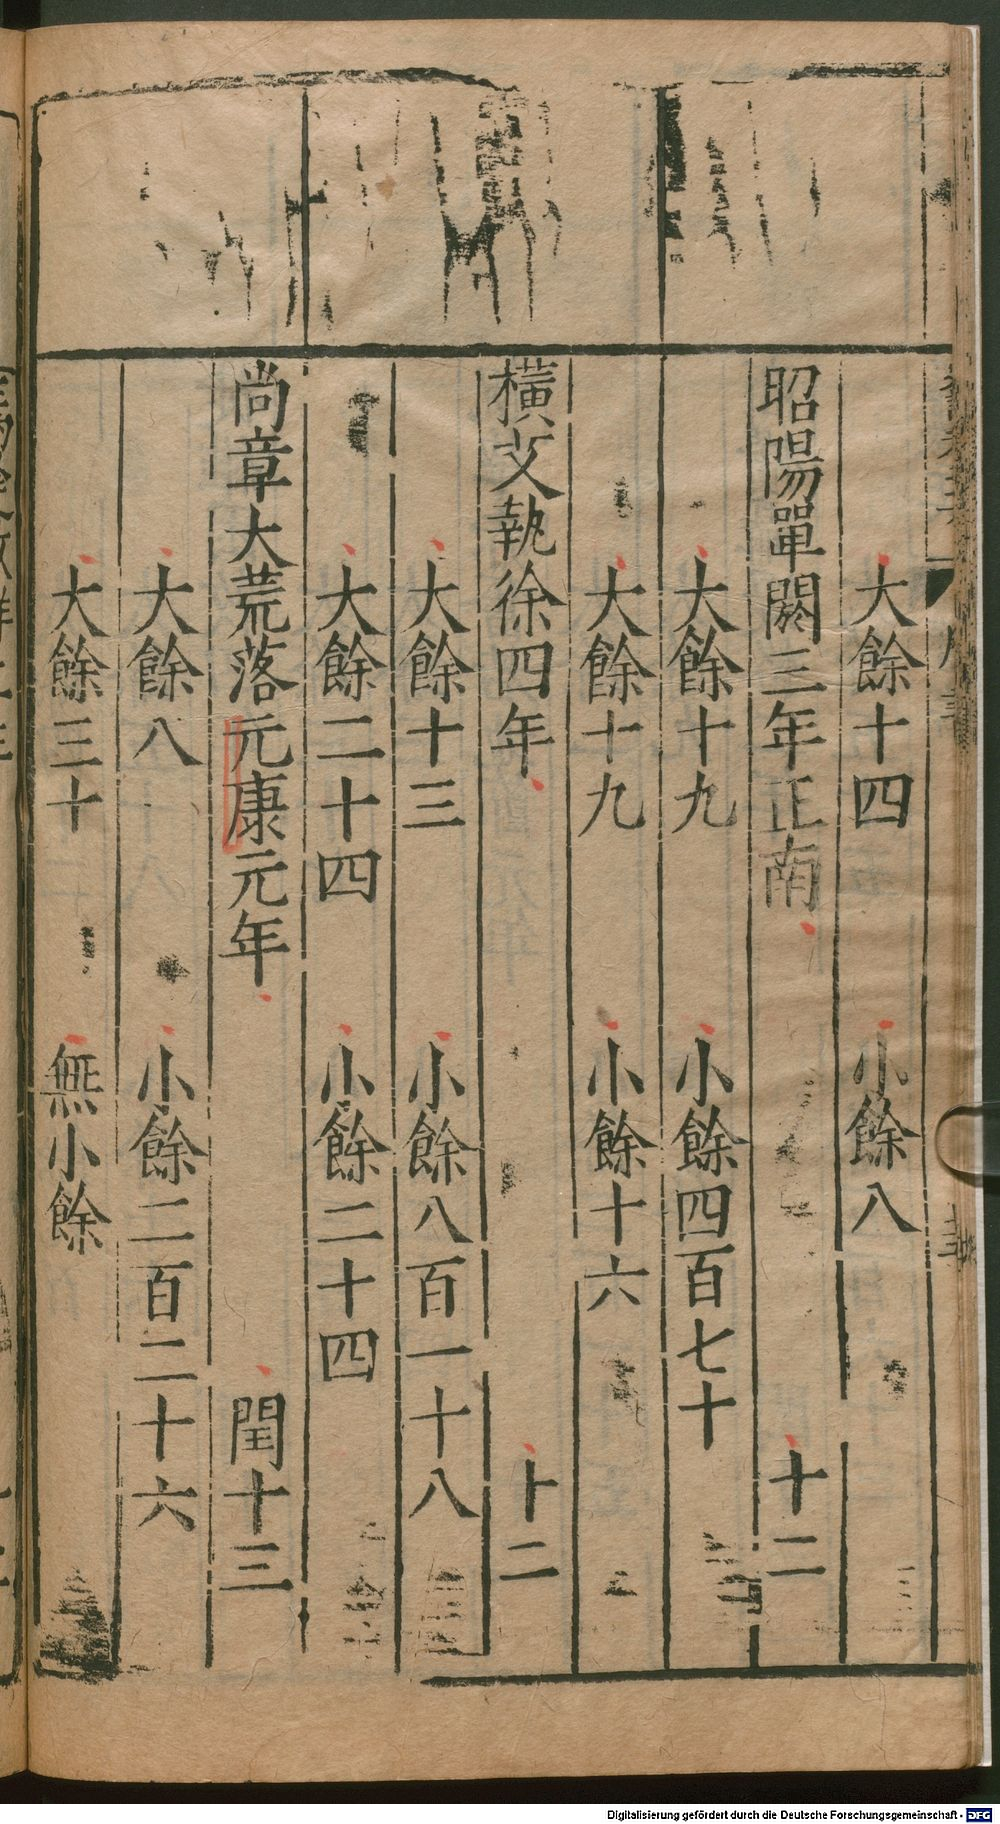 大餘十四 小餘八
昭陽單閼三年正南 十二
大餘十九 小餘四百七十
大餘十九 小餘十六
橫艾執徐四年 十二
大餘十三 小餘八百一十八
大餘二十四 小餘二十四
尚章大荒落元康元年 閏十三
大餘八 小餘二百二十六
大餘三十 無小餘
Digitalisierung gefördert durch die Deutsche Forschungsgemeinschaft - DFG